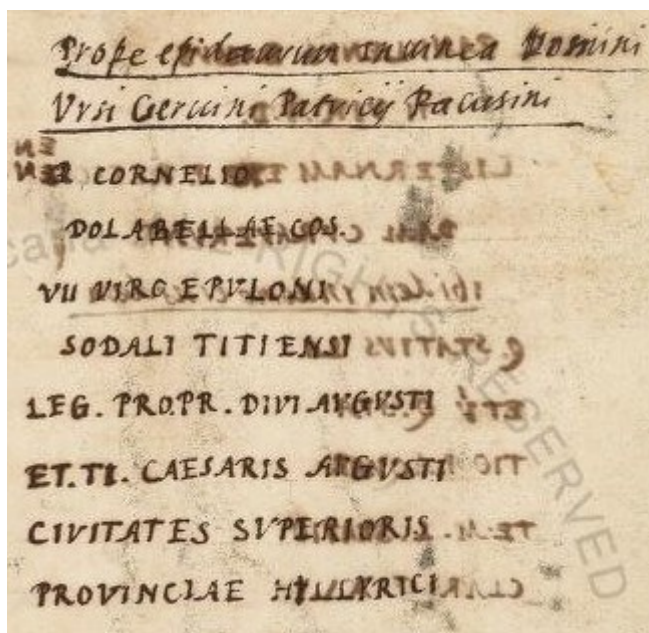 Prope epidaurum In uinea Domini
Vrsi Ceruini Patricij Racusini
P. CORNELIO
DOLABELLAE COS.
VII VIRO EPVLONI
SODALI TITIENSI
LEG. PRO.PR. DIVI AVGVSTI
ET.TI. CAESARIS AVGVSTI
CIVITATES SVPERIORIS
PROVINCIAE HILLYRICI
RIGHTS RESERVED